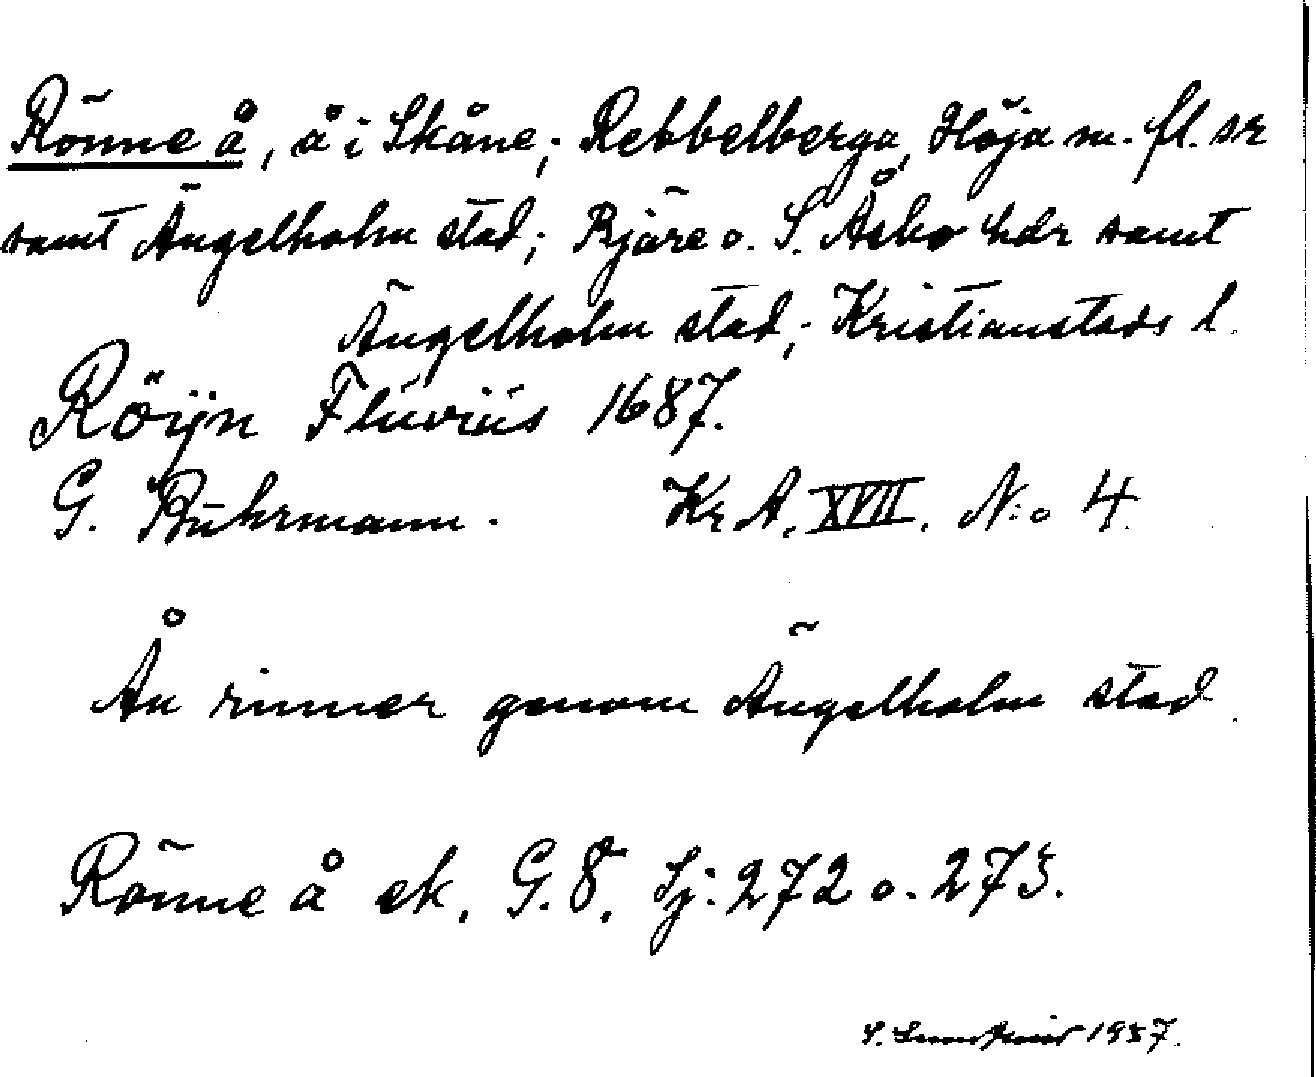 Rönne å, å i Skåne; Rebbelberga, Höja m. fl. snr
samt Ängelholm stad; Bjäre o. S. Åsbo hdr samt
Ängelholm stad; Kristianstads l.
Röijn Fluviüs 1687.
G. Buhrmann. Kr. A. XVII. N:o 4.
Ån rinner genom Ängelholm stad.
Rönne å ek. G. 8. Sj: 272 o. 273.
S. 1957.